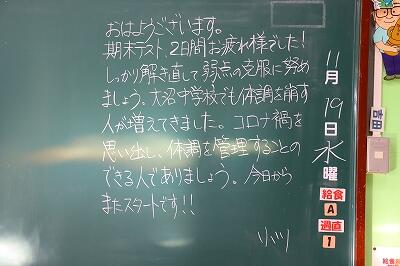 おはようございます。
期末テスト、2日間お疲れ様でした！
しっかり解き直して弱点の克服に努め
ましょう。大沼中学校でも体調を崩す
人が増えてきました。コロナ禍を
思い出し、体調を管理することの
できる人でありましょう。今日から
またスタートです!!
11月19日水曜
給食
A
週直
1
吉田
給食